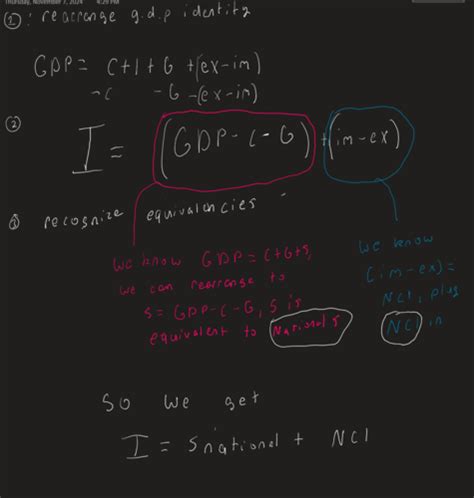 Thursday, November 7, 2024 4:29 PM
①: rearrange g.d.p identity
GDP = C+I+G+(ex-im)
-C -G-(ex-im)
②
I = (GDP-C-G) + (im-ex)
③ recognize equivalencies
We know GDP = C+G+S,
we can rearrange to
S = GDP-C-G, S is
equivalent to National S
We know
(im-ex) =
NCI, plug
NCI in
So we get
I = Snational + NCI